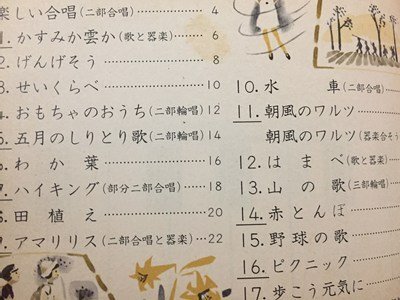 楽しい合唱(二部合唱)‥‥‥‥ 4
1. かすみか雲か(歌と器楽)‥‥‥‥ 6
2. げんげそう‥‥‥‥ 8
3. せいくらべ‥‥‥‥ 10
4. おもちゃのおうち(二部輪唱)‥‥ 12
5. 五月のしりとり歌(二部輪唱)‥‥ 14
6. わか葉‥‥‥‥ 16
7. ハイキング(部分二部合唱)‥‥‥‥ 18
8. 田植え‥‥‥‥ 20
9. アマリリス(二部合唱と器楽)‥‥ 22
10. 水車(二部合唱)
11. 朝風のワルツ
朝風のワルツ(器楽合そう
12. はまべ(歌と器楽)
13. 山の歌(三部輪唱)
14. 赤とんぼ‥‥‥‥
15. 野球の歌‥‥‥‥
16. ピクニック‥‥‥‥
17. 歩こう元気に